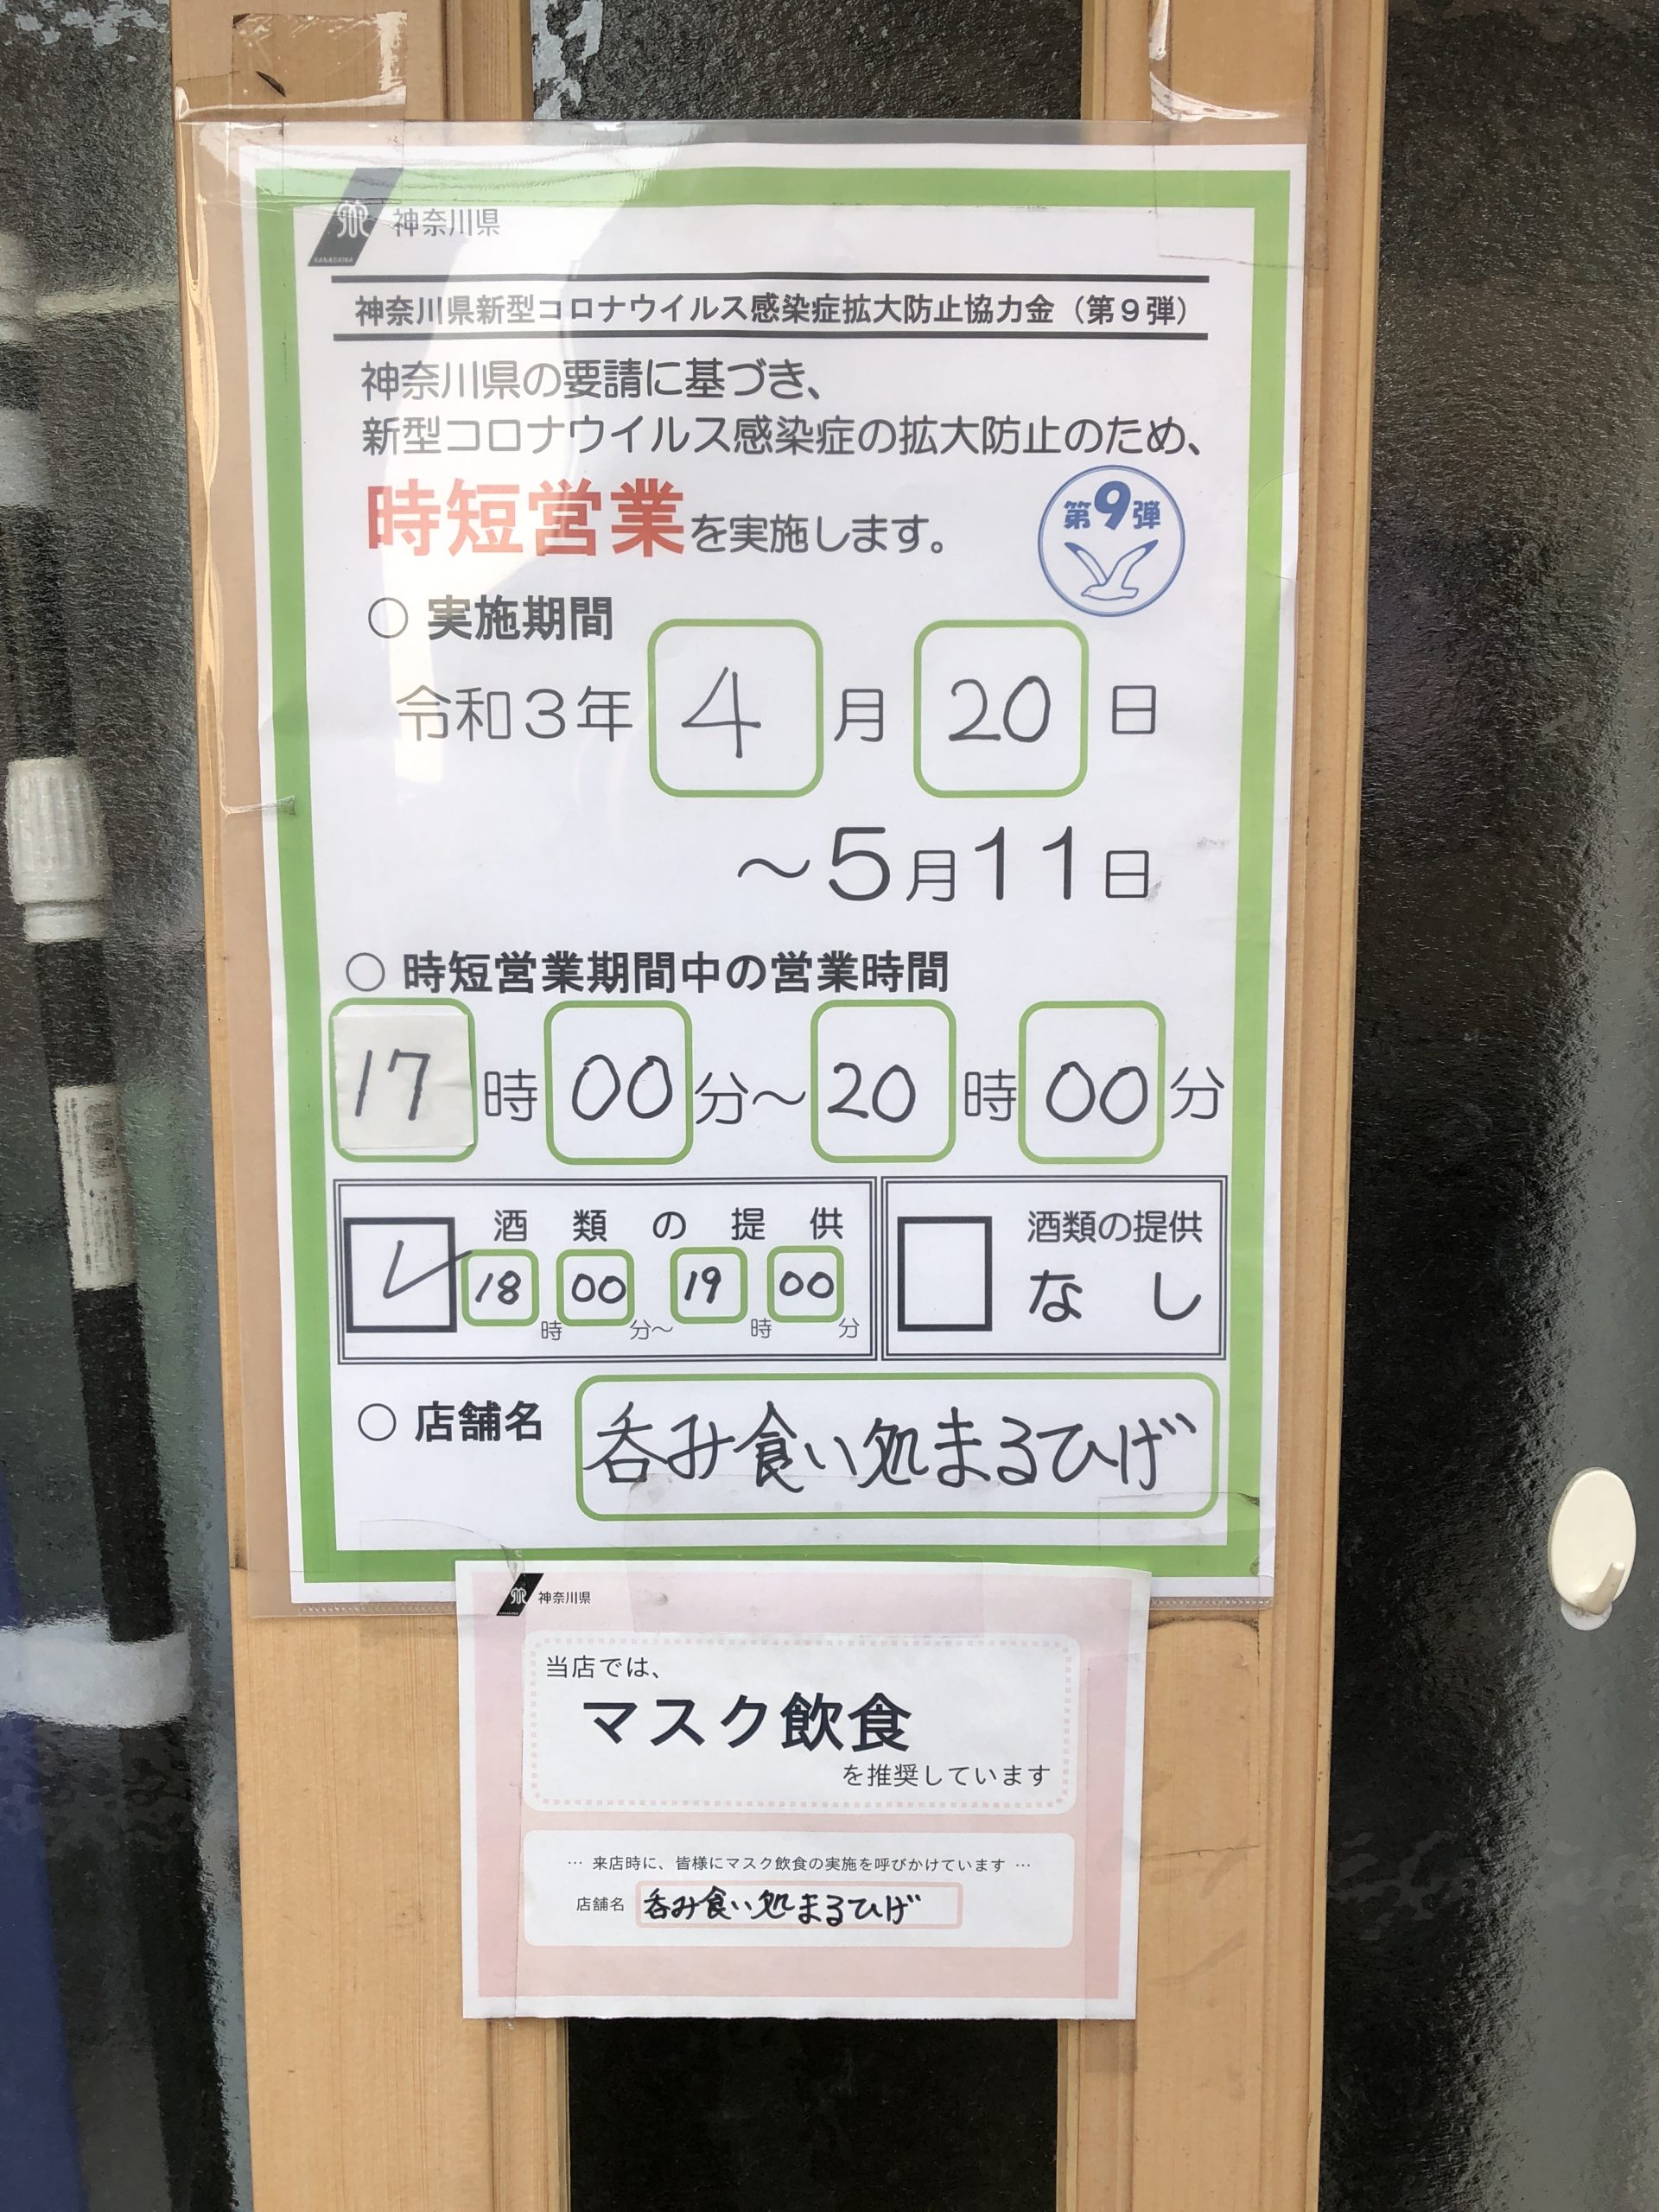 神奈川県
神奈川県新型コロナウイルス感染症拡大防止協力金（第９弾）
神奈川県の要請に基づき、
新型コロナウイルス感染症の拡大防止のため、
時短営業を実施します。
第9弾
○ 実施期間
令和３年 4 月 20 日
～5月11日
○ 時短営業期間中の営業時間
17 時 00 分～ 20 時 00 分
酒類の提供
18 時 00 分～ 19 時 00 分
酒類の提供
なし
○ 店舗名 呑み食い処まるひげ
神奈川県
当店では、
マスク飲食
を推奨しています
… 来店時に、皆様にマスク飲食の実施を呼びかけています …
店舗名 呑み食い処まるひげ